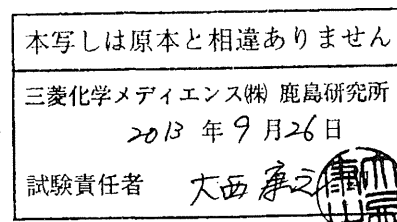 本写しは原本と相違ありません
三菱化学メディエンス㈱ 鹿島研究所
2013 年 9 月 26 日
試験責任者 大西康之